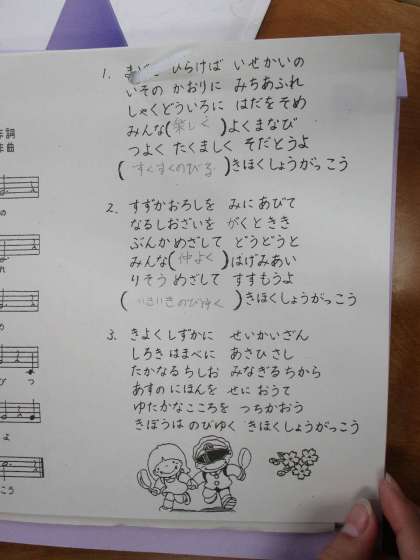 詞
曲
の
れ
め
び つ
よ
こう
1. ひらけば いせかいの
いその かおりに みちあふれ
しゃくどういろに はだをそめ
みんな(楽しく)よくまなび
つよく たくましく そだとうよ
(すくすくのびる)きほくしょうがっこう
2. すずかおろしを みにあびて
なるしおざいを がくときき
ぶんかめざして どうどうと
みんな(仲よく)はげみあい
りそうめざして すすもうよ
(いきいきのびゆく)きほくしょうがっこう
3. きよくしずかに せいかいざん
しろきはまべに あさひさし
たかなるちしお みなぎるちから
あすのにほんを せにおうて
ゆたかなこころを つちかおう
きぼうはのびゆく きほくしょうがっこう